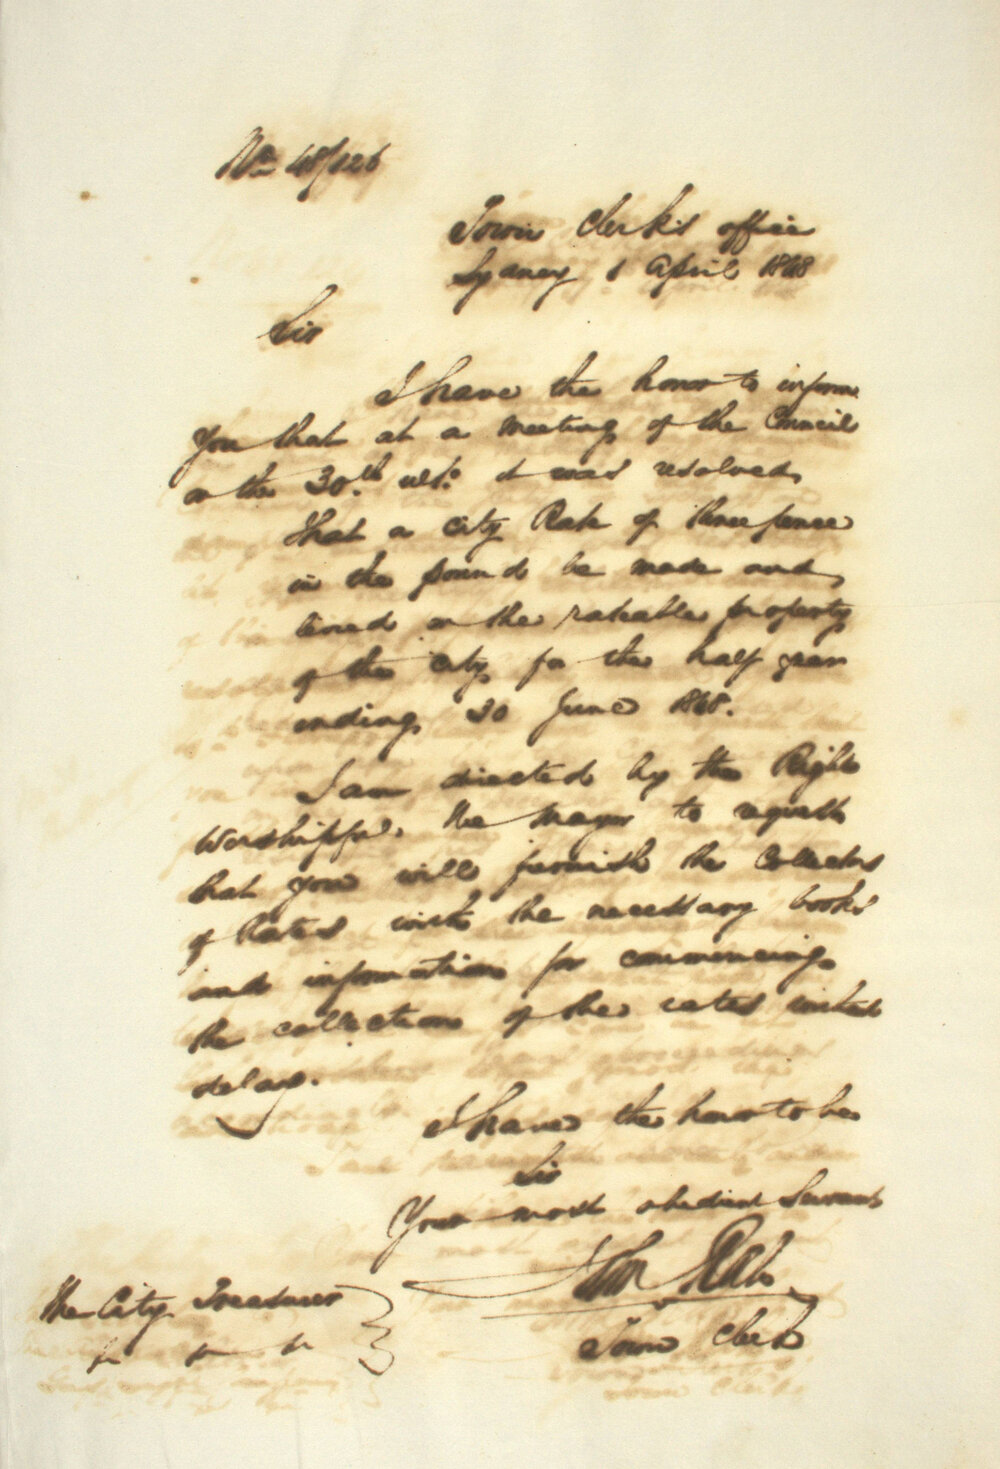 No. 48/126
Town Clerk's office
Sydney 1 April 1868
Sir
I have the honor to inform
you that at a meeting of the Council
on the 30th. ulto. it was resolved,
That a City Rate of threepence
in the pound be made and
levied on the rateable property
of the City for the half year
ending 30 June 1868.
I am directed by the Right
Worshipful the Mayor to request
that you will furnish the Collectors
of Rates with the necessary books
and information for commencing
the collection of the rates without
delay.
I have the honor to be
Sir
Your most obedient Servant
Town Clerk
The City Treasurer